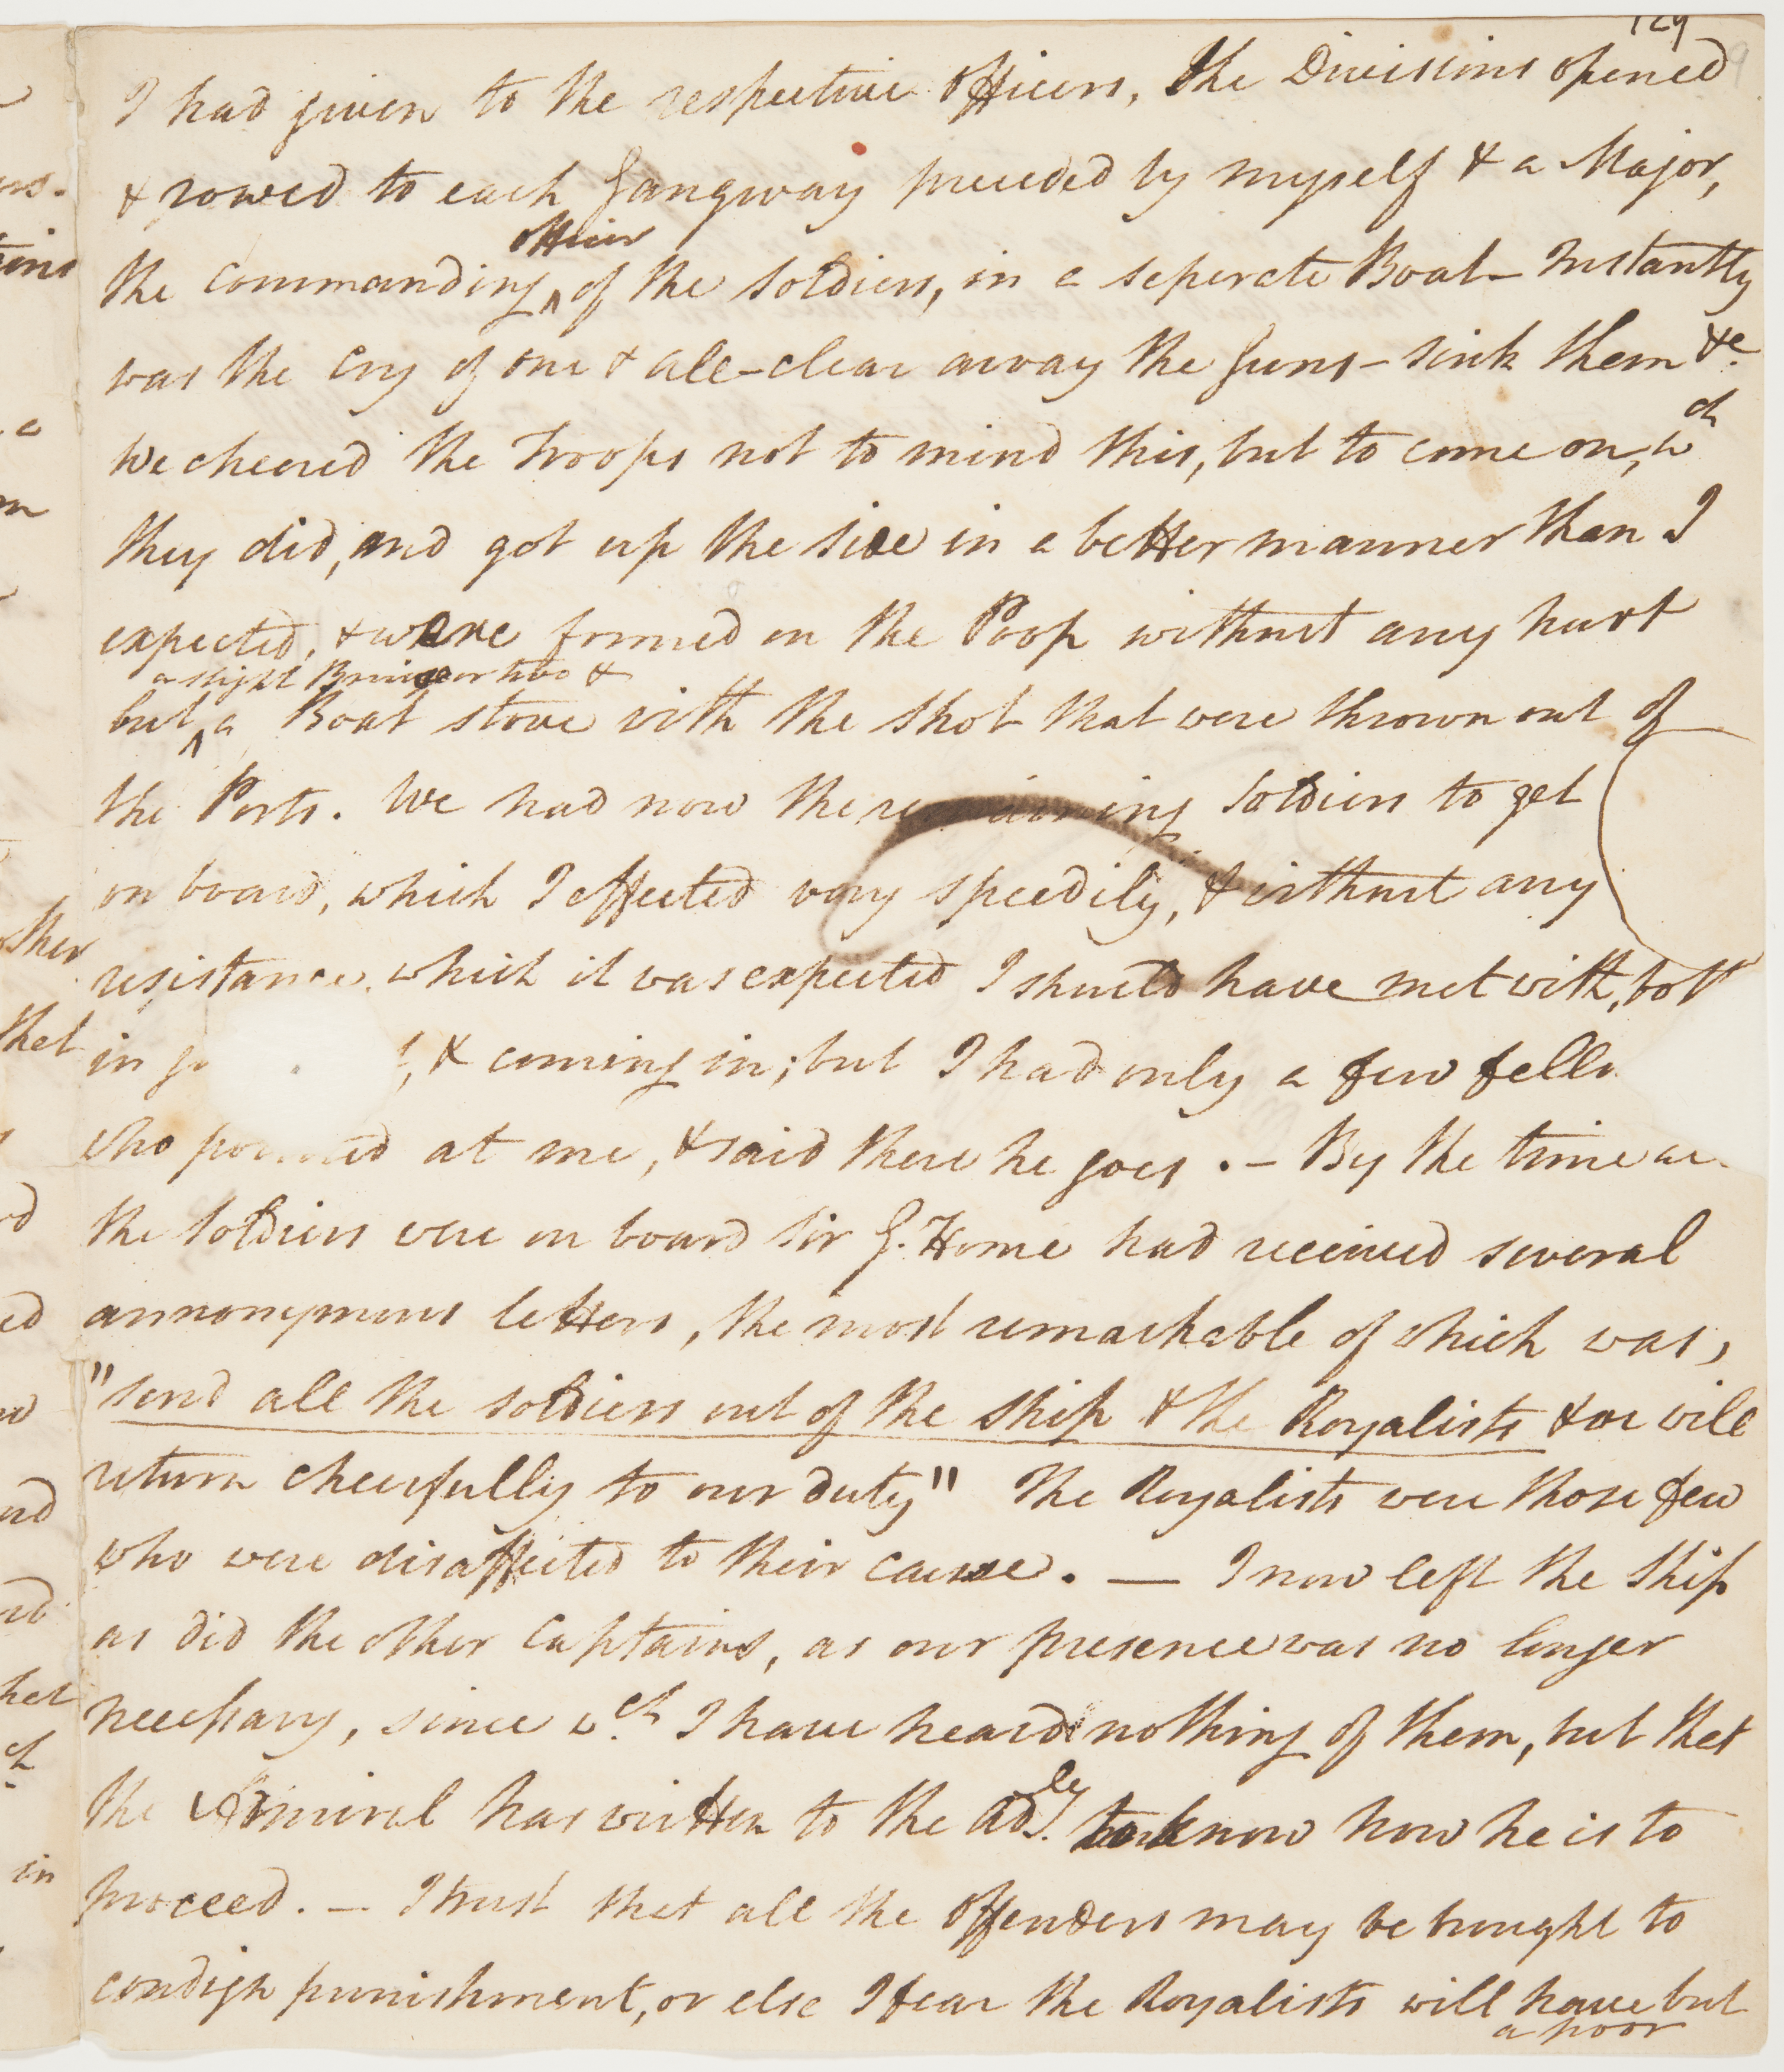 129
I had given to the respective officers, the Divisions opened
& rowed to each Gangway preceded by myself & a Major,
officer
the Commanding ^ of the Soldiers, in a seperate Boat – Instantly
was the Cry of one & all – clear away the Guns – sink them &c.
We cheered the Troops not to mind this, but to come on, wch
they did, and got up the side in a better manner than I
expected, & were formed on the Poop without any hurt
a slight Bruise or two &
but ^ a Boat stove with the shot that were thrown out of
the Ports. We had now the remaining Soldiers to get
on board, which I effected very speedily, & without any
resistance, which it was expected I should have met with, both
in & coming in; but I had only a few
who pointed at me, & said there he goes. – By the time
the Soldiers were on board Sir G. Home had received several
annonymous letters, the most remarkable of which was,
"send all the soldiers out of the Ship & the Royalists & we will
return cheerfully to our duty" The Royalists were those few
who were disaffected to their cause. — I now left the Ship
as did the other Captains, as our presence was no longer
necessary, since wch. I have heard nothing of them, but that
the Admiral has written to the Adly. to know how he is to
proceed. – I trust that all the offenders may be brought to
condign punishment, or else I fear the Royalists will have but
a poor